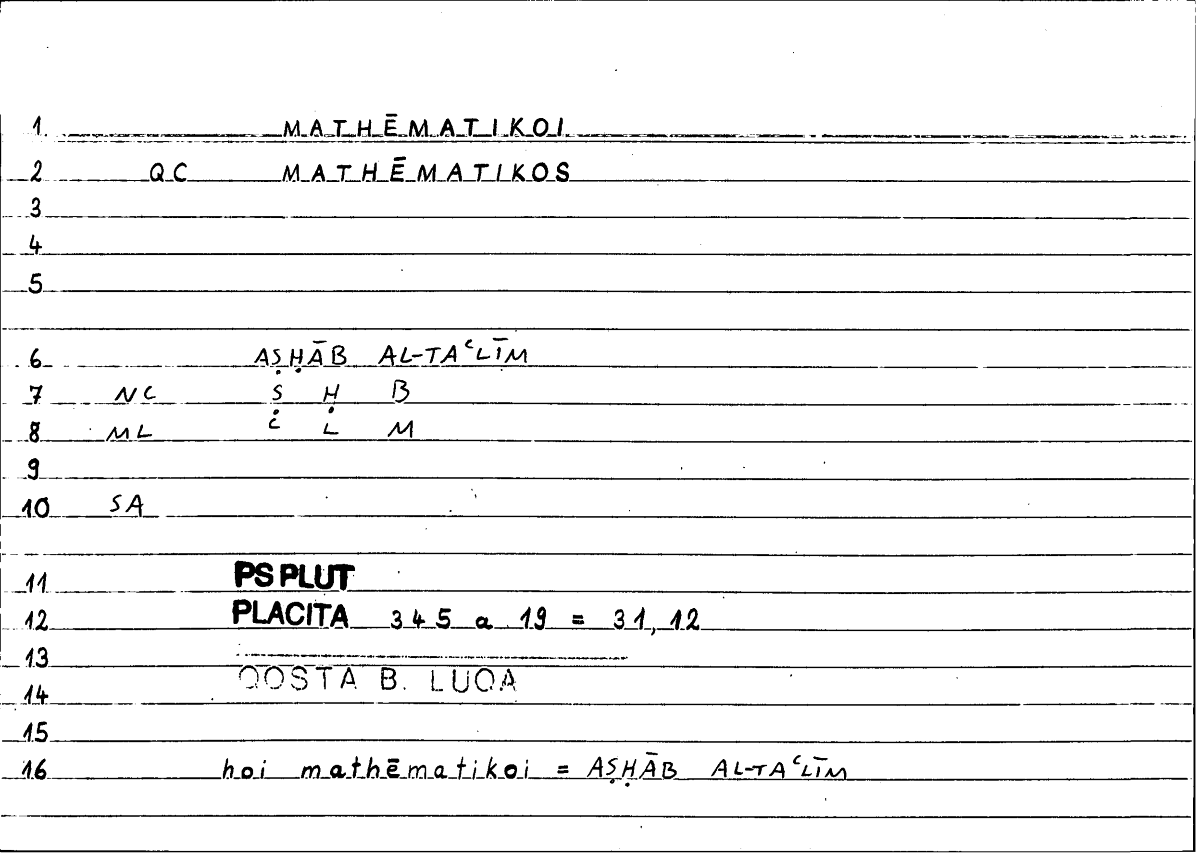 1. MATHĒMATIKOI.
2 QC MATHĒMATIKOS
3
4
5
6 AṢḤĀB AL-TAʿLĪM
7 NC Ṣ Ḥ B
8 ML ʿ L M
9
10 SA
11 PS PLUT
12 PLACITA 345 a 19 = 31,12
13
14 QOSTA B. LUQA
15
16 hoi mathēmatikoi = AṢḤĀB AL-TAʿLĪM